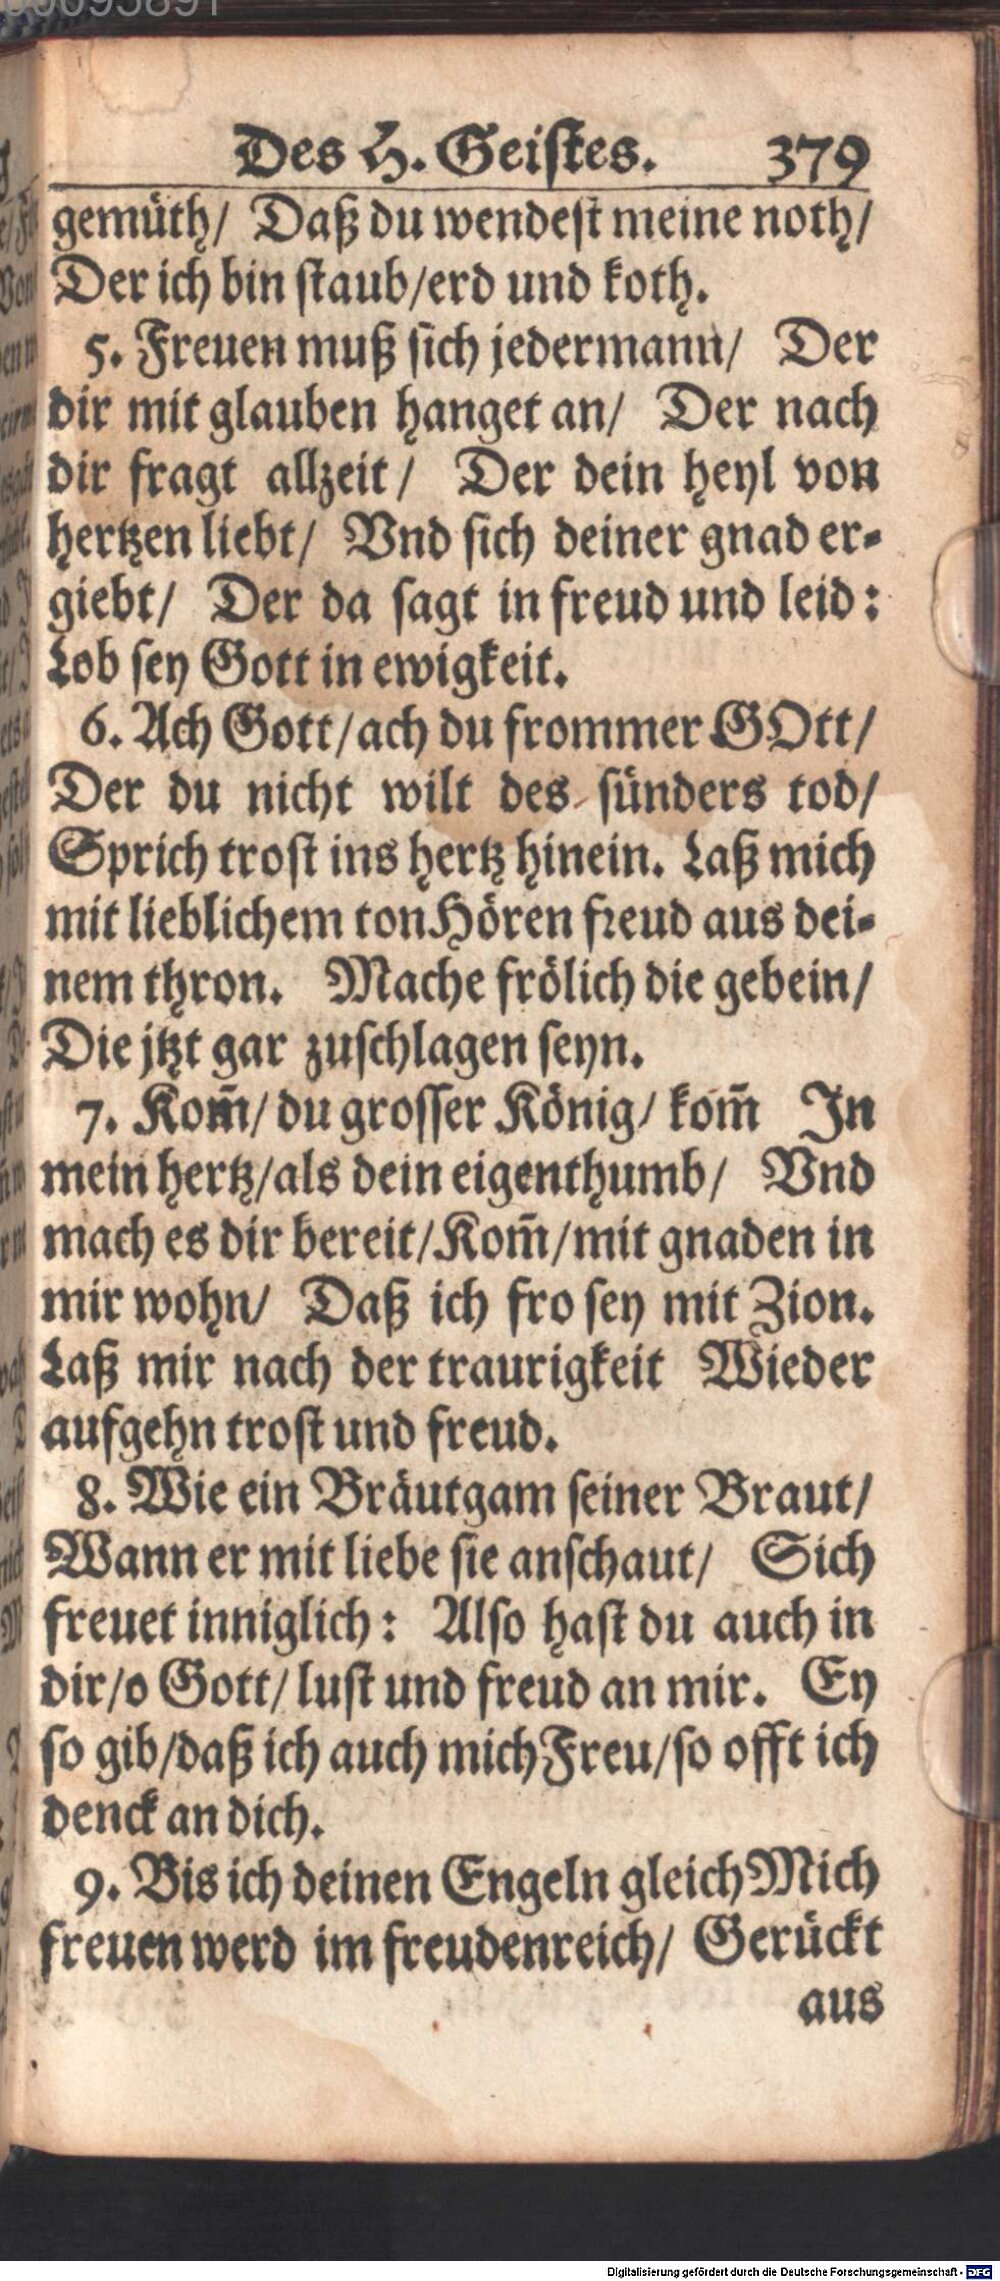 Des H. Geiſtes. 379
gemüth/ Daß du wendeſt meine noth/
Der ich bin ſtaub/erd und koth.
5. Freuen muß ſich jedermann/ Der
dir mit glauben hanget an/ Der nach
dir fragt allzeit/ Der dein heyl von
hertzen liebt/ Vnd ſich deiner gnad er-
giebt/ Der da ſagt in freud und leid:
Lob ſey Gott in ewigkeit.
6. Ach Gott/ach du frommer GOtt/
Der du nicht wilt des ſünders tod/
Sprich troſt ins hertz hinein. Laß mich
mit lieblichem ton Hören freud aus dei-
nem thron. Mache frölich die gebein/
Die jtzt gar zuſchlagen ſeyn.
7. Kom̃/ du groſſer König/ kom̃ In
mein hertz/als dein eigenthumb/ Vnd
mach es dir bereit/Kom̃/mit gnaden in
mir wohn/ Daß ich fro ſey mit Zion.
Laß mir nach der traurigkeit Wieder
aufgehn troſt und freud.
8. Wie ein Bräutgam ſeiner Braut/
Wann er mit liebe ſie anſchaut/ Sich
freuet inniglich: Alſo haſt du auch in
dir/o Gott/ luſt und freud an mir. Ey
ſo gib/daß ich auch mich Freu/ſo offt ich
denck an dich.
9. Bis ich deinen Engeln gleich Mich
freuen werd im freudenreich/ Gerückt
aus
Digitalisierung gefördert durch die Deutsche Forschungsgemeinschaft - DFG